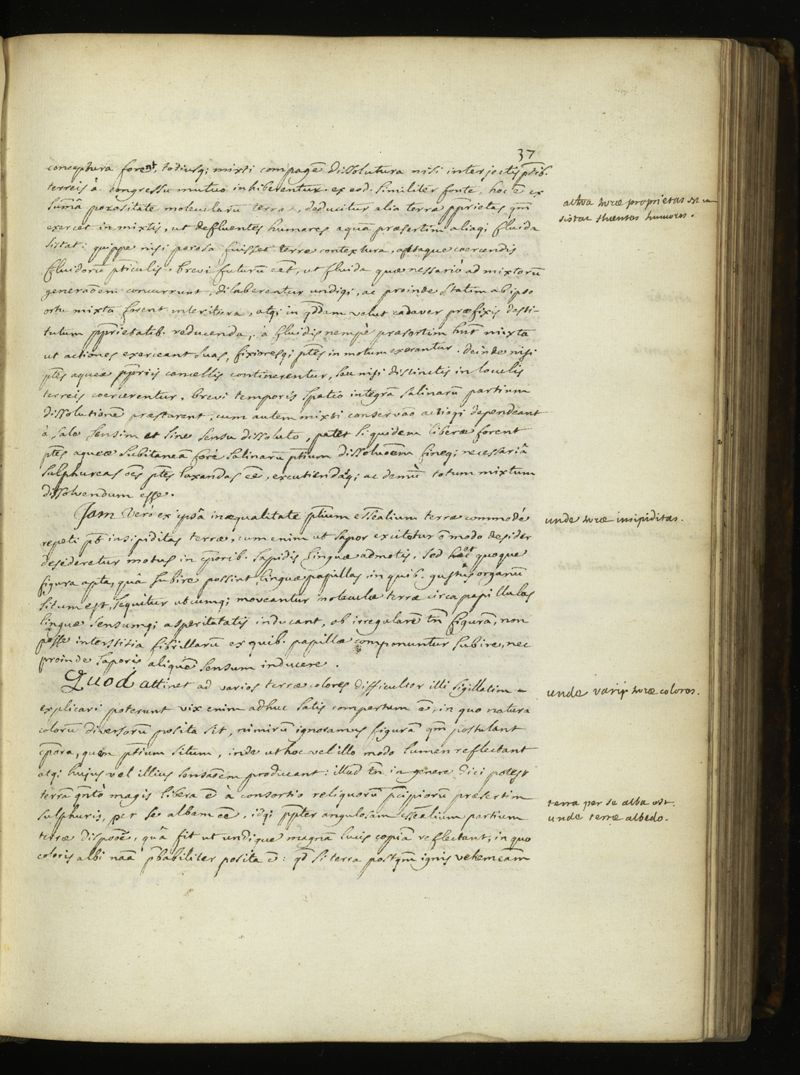 37
conceptura forent, totiusq; mixti compagē dissolutura nisi interjectis ptib.
terreis à congressu mutuo inhiberentur. ex eod. similiter fonte, hoc ē ex
summâ porositate molecularū terræ, deducitur alia terræ pprietas qm̄
exercet in mixtis, ut defluentes humores aquā præsertim aliaq; fluida
sistat. quippe nisi porosa fuisset terræ contextura, aptaque coercendis
fluidorū pticulis, brevi futurū eēt, ut fluida quæ necessariò ad mixtorū
generaōem concurrunt, dilaberentur undiq;, ac proinde statim ab ipso
ortu mixta forent interitura, atq; in qddem velut cadaver præfixis desti-
tutum pprietatib. reducenda, à fluidis nempè præsertim hn̄t mixta
ut actiones exerceant suas, fixioresq; ptes in motum exerantur. deinde nisi
ptes aqueæ ppriis cancellis continerentur, seu nisi distinctis in loculis
terreis coercerentur, brevi temporis spatio integrā salinarū partium
dissolutionē præstarent, cum autem mixti conservāo actioq; dependeant
à sale sensim et sine sensu dissoluto, patet siquidem liberæ forent
ptes aqueæ subitaneā forè salinarū ptium dissoluōem sineq; necessariâ
sulphureas oēs ptes laxandas eē, excutiendasq; ac demùm totum mixtum
dissolvendum esse.
Jam verò ex ipsâ inæqualitate ptium essēalium terræ commodè
repeti pōt insipiditas terræ, cum enim ut sapor excitetur ō modo desider
desideretur motus in cporib. sapidis linguæ admotis, sed hæc quoque
figura apta, quâ subire possint linguæ papillas in quib. gustûs organū
situm est, sequitur ubcumq; moveantur moleculæ terræ circa papillulas
linguæ sensumq; asperitatis inducant, ob irregularē tn̄ figurā, non
posse interstitia fibrillarū ex quib. papillæ componuntur subire, nec
proinde saporis aliquē sensum inducere.
Quod attinet ad varios terræ colores difficulter illi sigillatim
explicari poterunt vix enim adhuc satis compertum ē, in quo natura
colorū diversorū posita sit, nimirū ignoramus figurā qm̄ postulant
cpora, quem ptium situm, inde ut hoc vel illo modo lumen reflectant
atq; hujus vel illius sensaōem producant: illud tn̄ in genere dici potest
terrā qntò magis libera ē à consortio reliquorū pcipiorū præsertim
sulphuris, per se albam eē, idq; ppter angulosam essēalium partium
terræ disposōē, quâ fit ut undique magnā lucis copiā reflectant, in quo
coloris albi naā pbabiliter posita ē: qd si terra postqm̄ ignis vehemēam
altera terræ proprietas est ut
sistat fluentes humores.
unde terræ insipiditas.
unde varij terræ colores.
terra per se alba est.
unde terræ albedo.